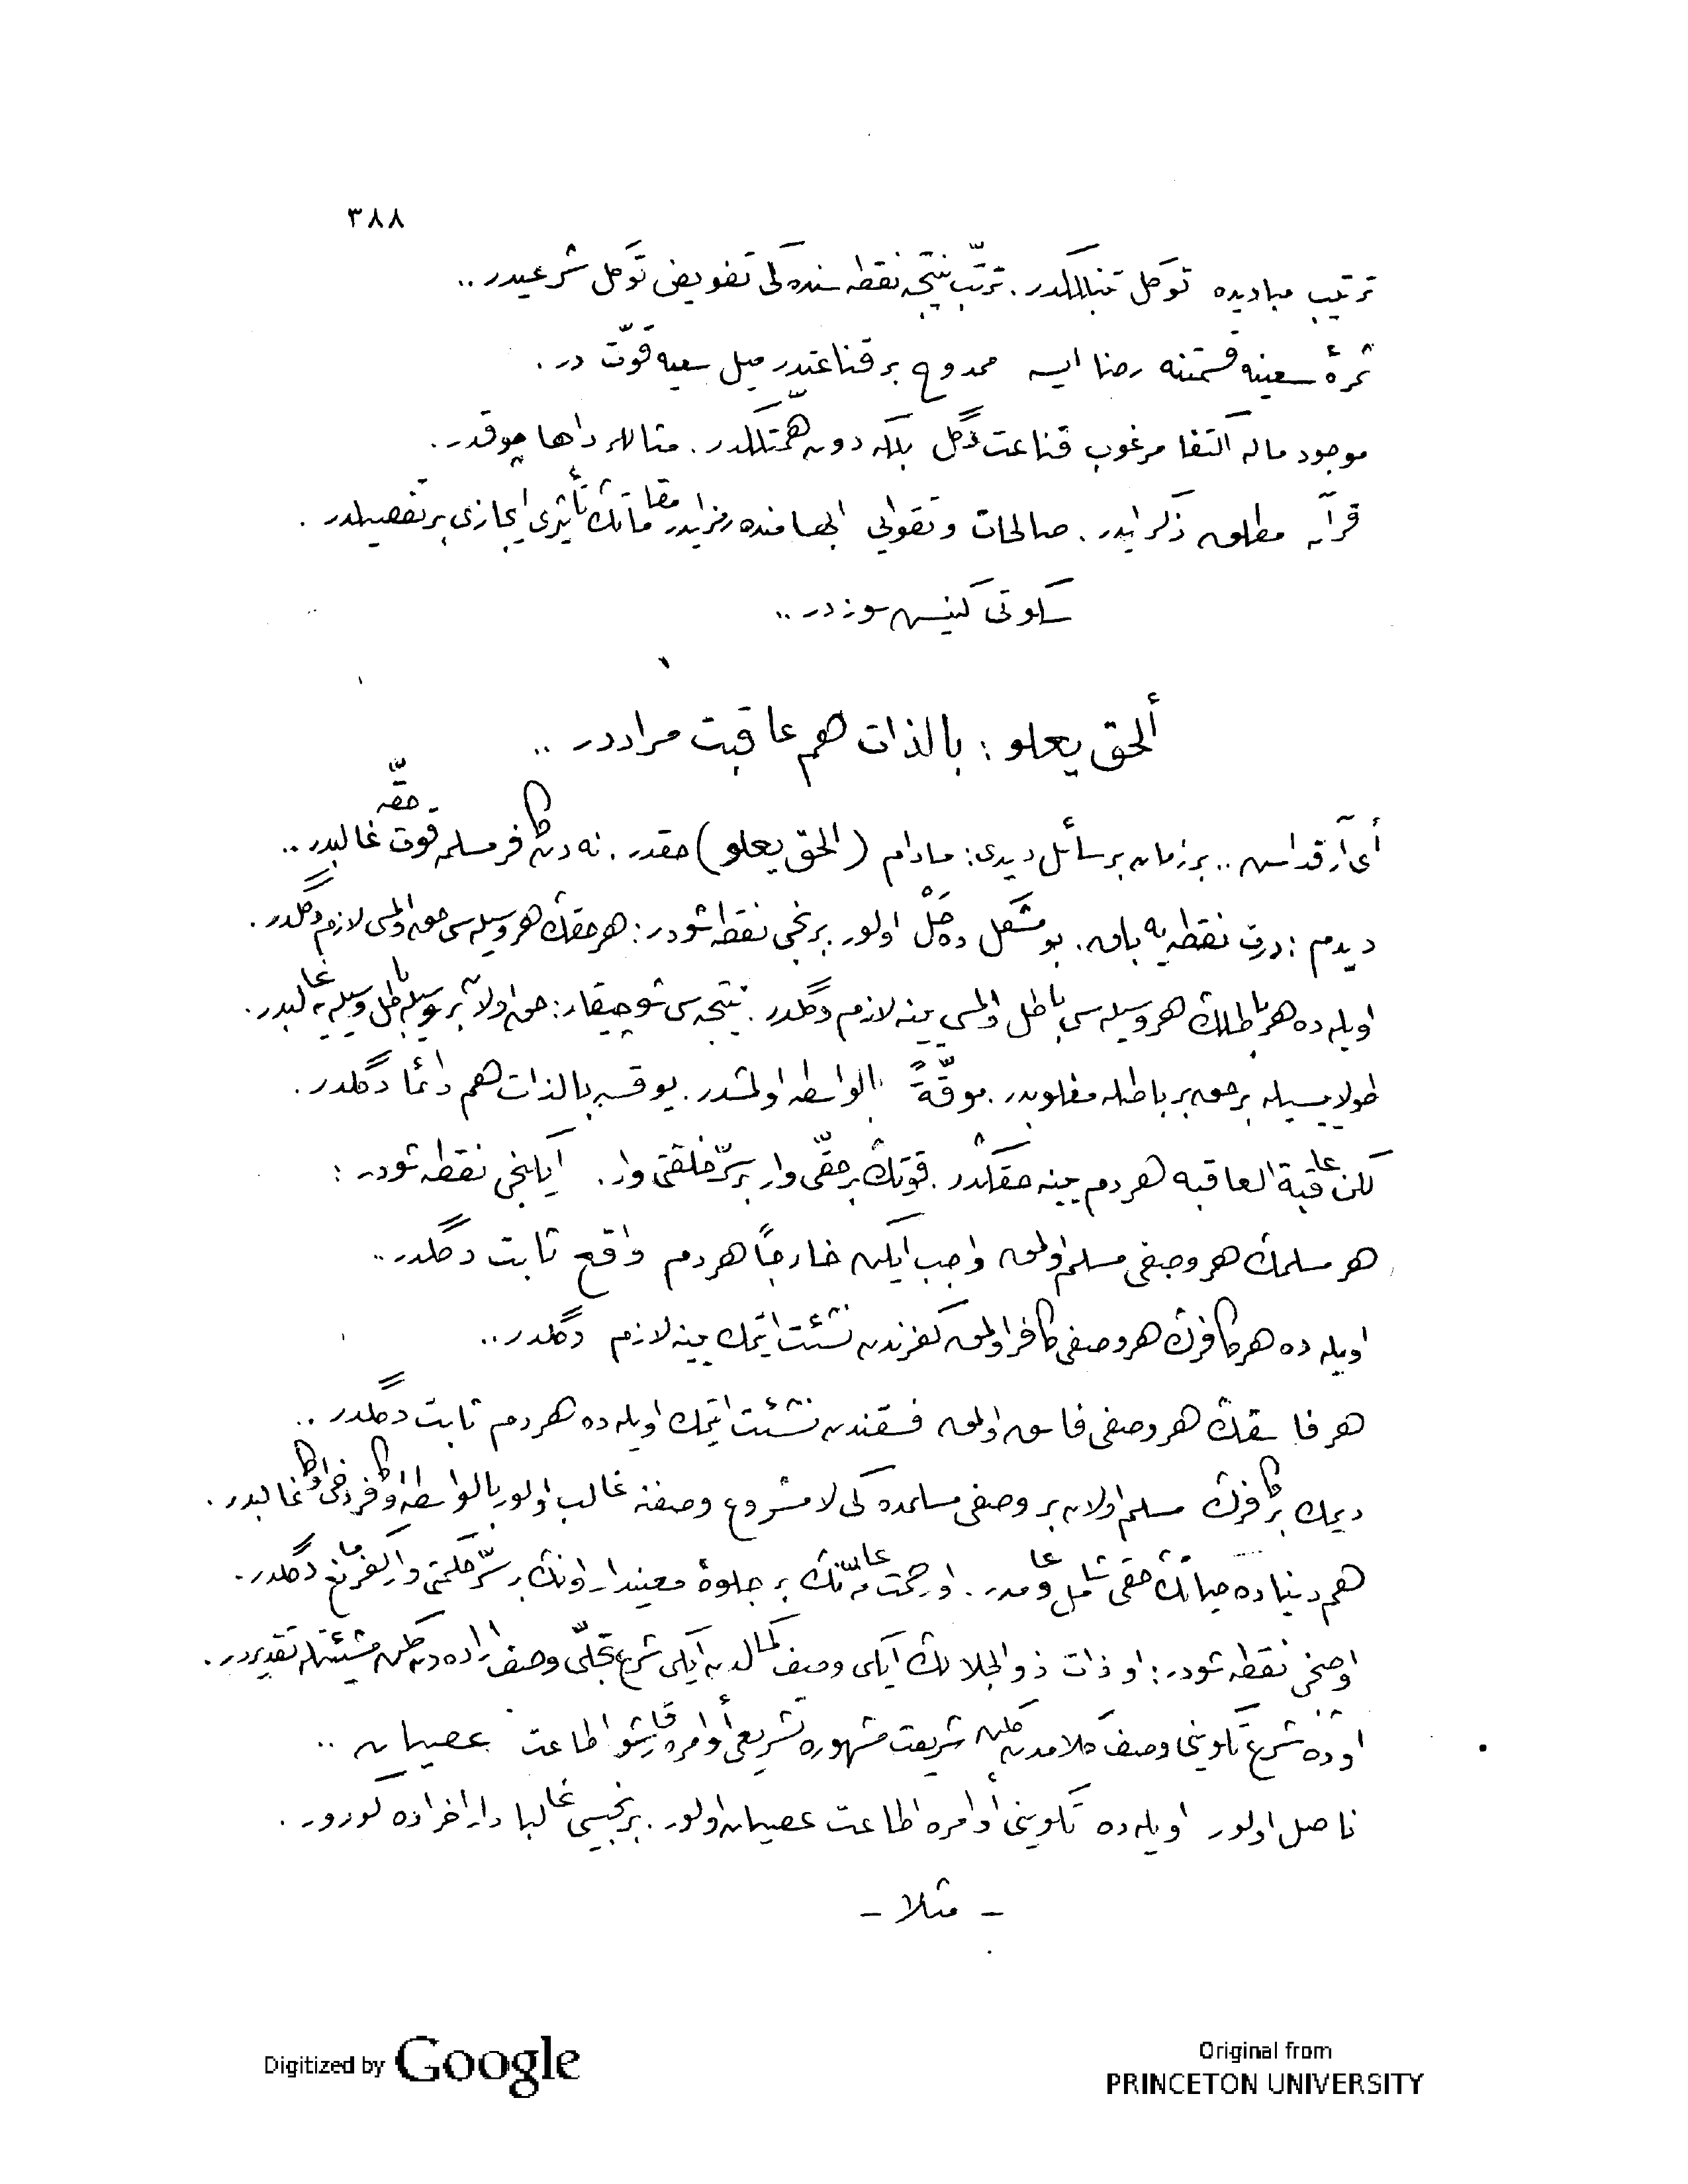 ٣٨٨
ترتيب مباديده توكل تنبللكدر. ترتّب نتيجه نقطه سنده كى تفويض توكل شرعيدر..
ثمرهٔ سعينه قسمتنه رضا ايسه ممدوح بر قناعتدر ميل سعيه قوّت در.
موجود ماله اكتفا مرغوب قناعت دگل بلكه دون همّتلكدر. مثاللر داها چوقدر.
قرآن مطلق ذكر ايدر. صالحات و تقوايى ابهامنده رمز ايدر مقاماتڭ تأثيرى ايجازى بر تفصيلدر.
سكوتى گنيش سوزدر..
ألحق يعلو: بالذات هم عاقبت مراددر..
أى آرقداش.. بر زمان بر سائل ديدى: مادام (الحق يعلو) حقدر. نه دن كافر مسلمه قوت حقّه غالبدر..
ديدم: درت نقطه يه باق. بو مشكل ده حَلْ اولور. برنجى نقطه شودر: هر حقڭ هر وسيله سى حق اولمسى لازم دگلدر.
اويله ده هر باطلڭ هر وسيله سى باطل اولمسى ينه لازم دگلدر. نتيجه سى شو چيقار: حق اولان بر وسيله باطل وسيله يه غالبدر.
طولاييسيله بر حق بر باطله مغلوبدر. موقّةً بالواسطه اولمشدر. يوقسه بالذات هم دائما دگلدر.
لكن عاقبة العاقبه هر دم ينه حقڭدر. قوّتڭ بر حقّى وار بر سرّ خلقتى وار. ايكنجى نقطه شودر:
هر مسلمڭ هر وصفى مسلم اولمق واجب ايكن خارجاً هر دم واقع ثابت دگلدر..
اويله ده هر كافرڭ هر وصفى كافر اولمق كفرندن نشئت ايتمك ينه لازم دگلدر..
هر فاسقڭ هر وصفى فاسق اولمق فسقندن نشئت ايتمك اويله ده هر دم ثابت دگلدر..
ديمك بر كافرڭ مسلم اولان بر وصفى مسلمده كى لامشروع وصفنه غالب اولور بالواسطه او كافر دخى اوڭا غالبدر.
هم دنياده حياتڭ حقى شامل و عامدر. او رحمت عامّه نڭ بر جلوهٔ معنيدار اونڭ بر سرّ حكمتى وار كفر مانع دگلدر.
اوچنجى نقطه شودر: او ذات ذو الجلالڭ ايكى وصف كمالدن ايكى شرع تجلّى وصف اراده دن گلن مشيئتله تقديردر.
او ده شرع تكوينى وصف كلامدن گلن شريعت مشهوره تشريعى أوامره قارشو اطاعت عصيان..
ناصل اولور اويله ده تكوينى أوامره اطاعت عصيان اولور. برنجيسى غالبا دار اخراده گورور.
- مثلا -
Digitized by Google
Original from
PRINCETON UNIVERSITY